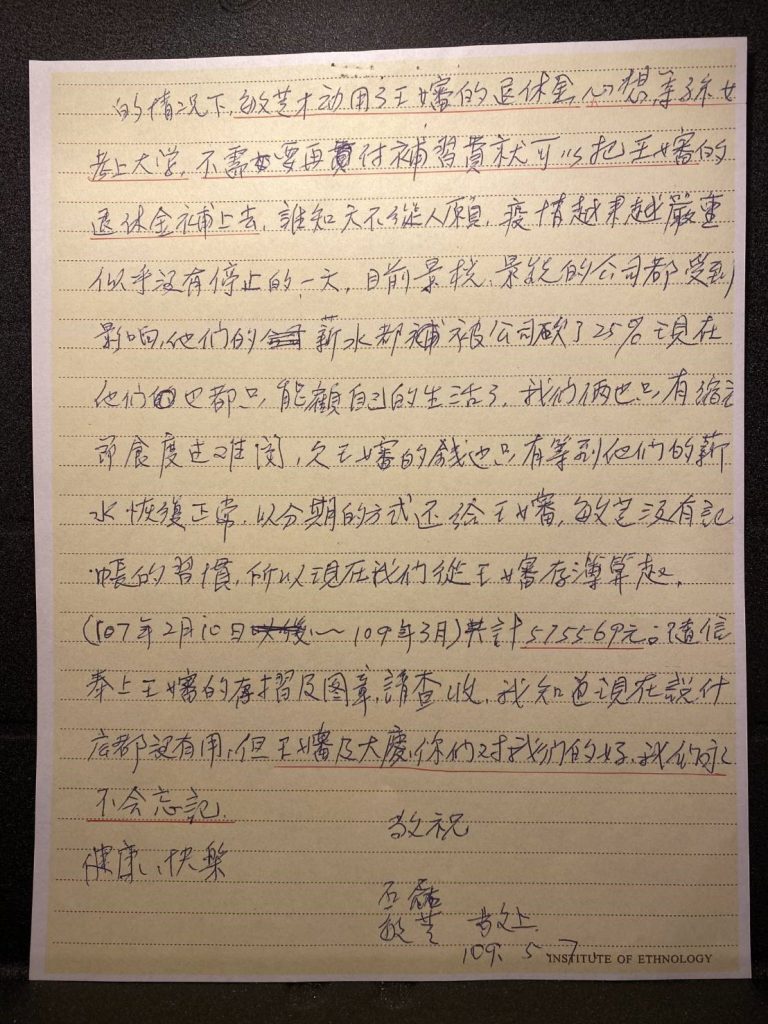 的情况下,敏芝才动用了王嬸的退休金,心想等孫女
考上大学,不需要再付補習費就可以把王嬸的
退休金補上去,誰知天不從人願,疫情越來越嚴重
似乎没有停止的一天,目前景栈、景銑的公司都受到
影响,他们的薪水都被公司砍了25%現在
他们也都只能顧自己的生活了,我们俩也只有縮衣
節食度过难関,欠王嬸的錢也只有等到他们的薪
水恢復正常,以分期的方式还给王嬸,敏芝沒有記
帳的習慣,所以現在我们從王嬸存簿算起,
(107年2月10日~109年3月)共計575569元,隨信
奉上王嬸的存摺及图章,請查收,我知道現在說什
底都沒有用,但王嬸及大慶,你们对我们的好,我们永
不会忘記.
敬祝
健康、快樂
石磊
敏芝 敬上
109. 5. 7
INSTITUTE OF ETHNOLOGY